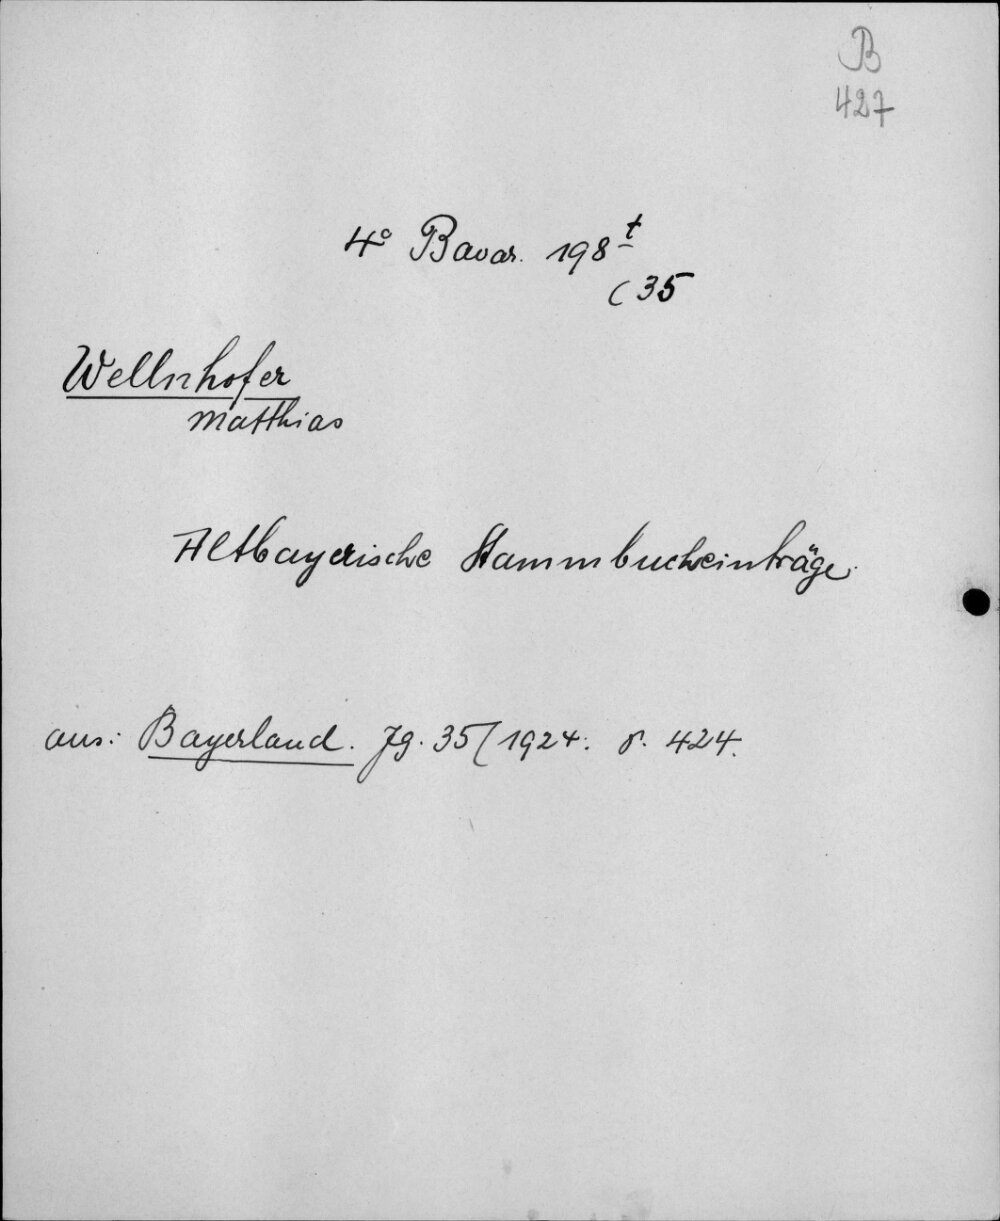 B
427
4° Bavar. 198 t
(35
Wellnhofer
Matthias
Altbayerische Stammbucheinträge.
aus: Bayerland. Jg. 35/1924. S. 424.